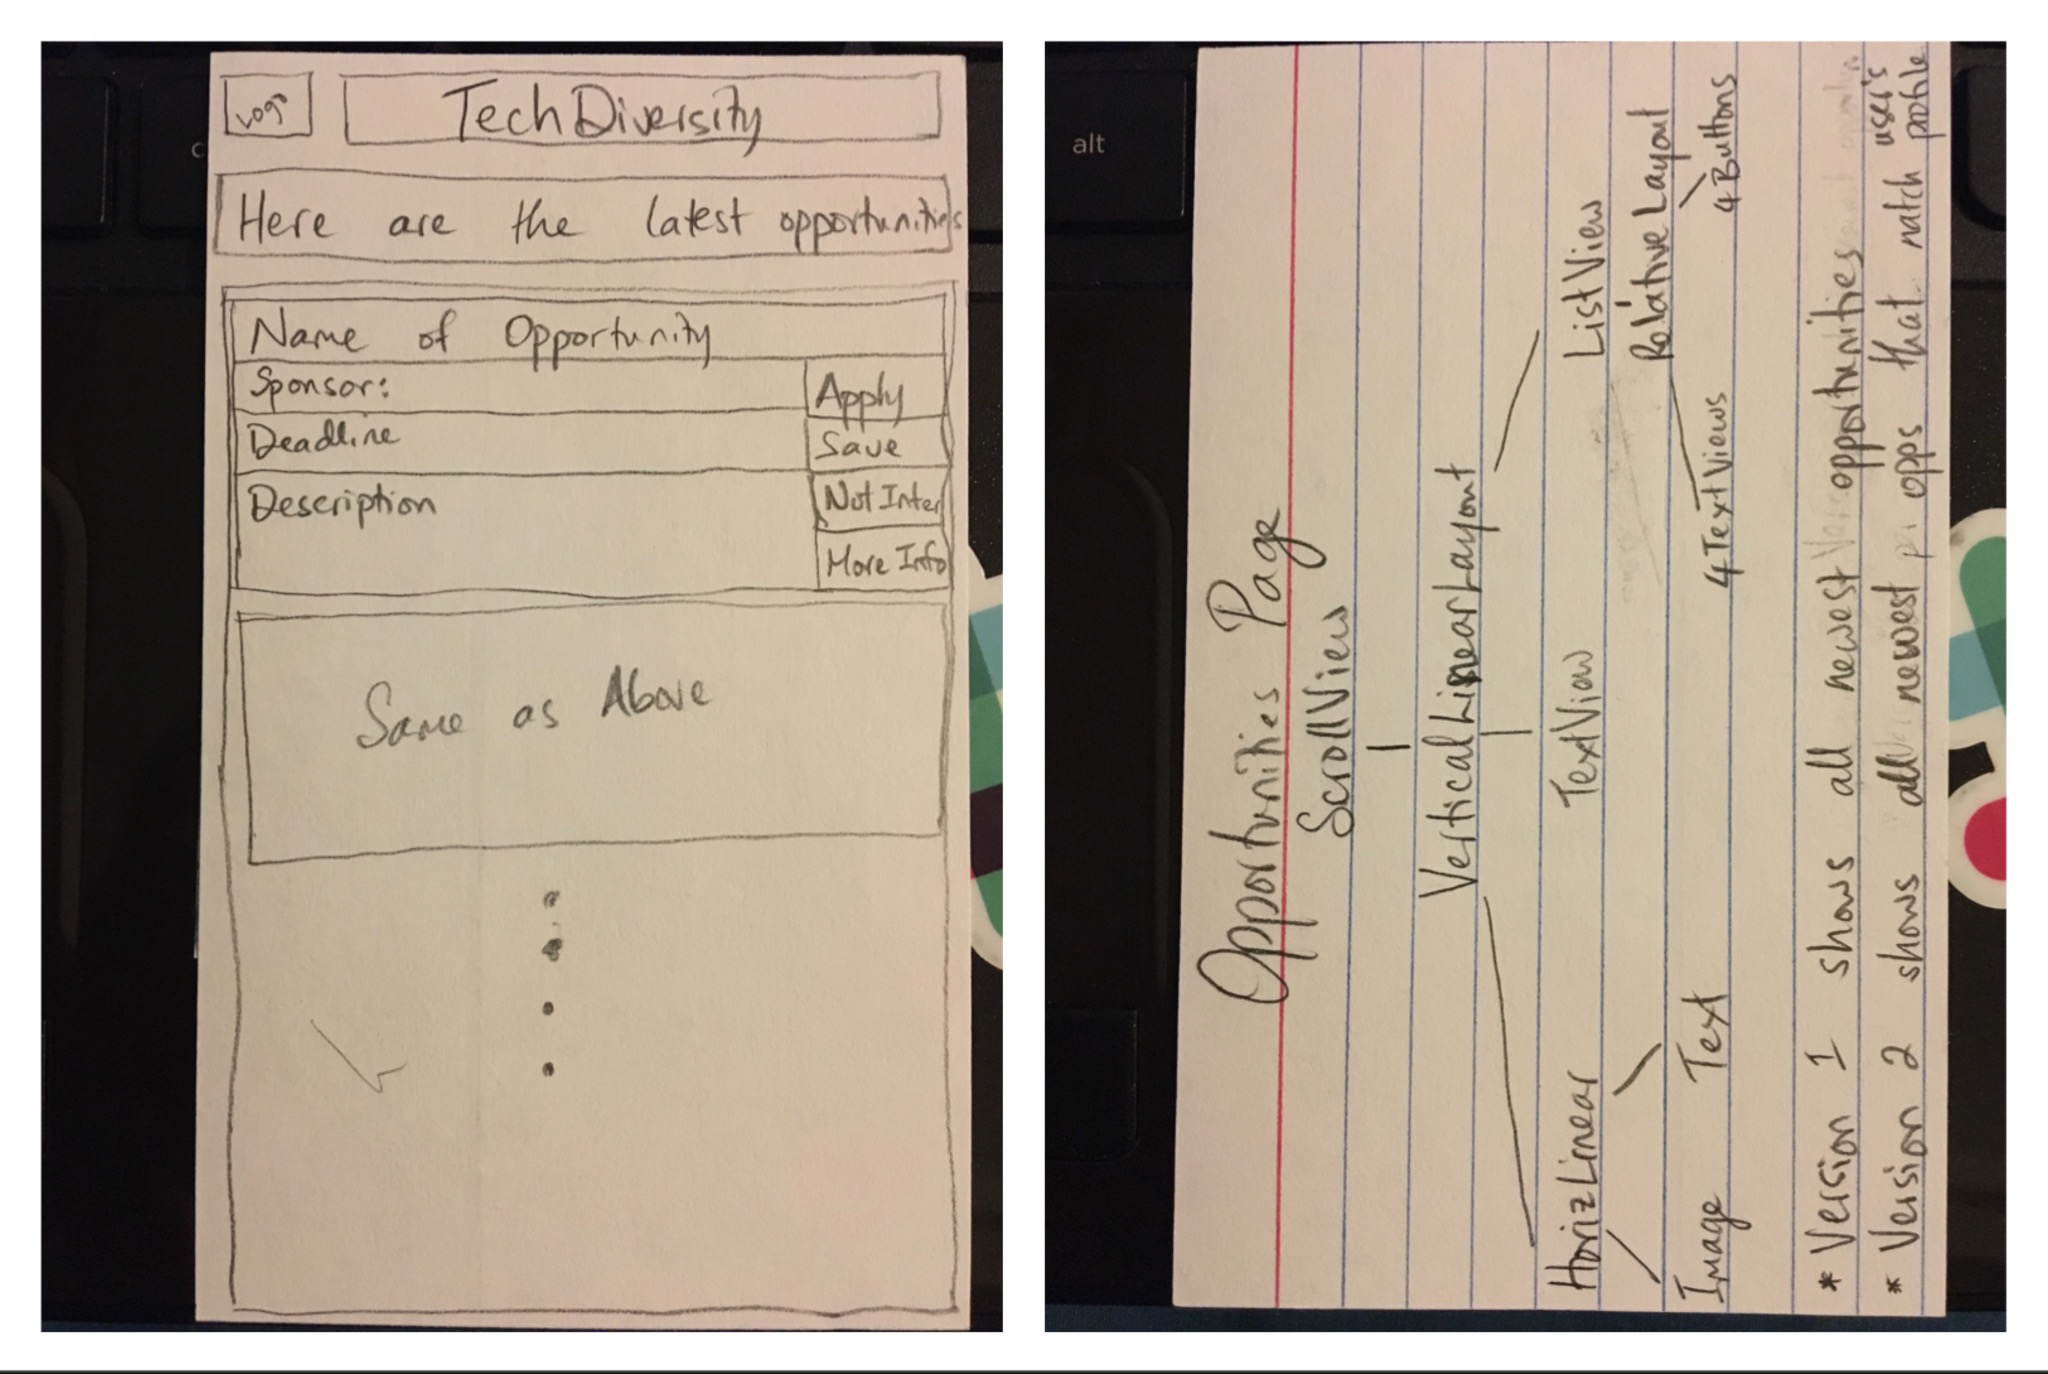 Logo
TechDiversity
Here are the latest opportunities
Name of Opportunity
Sponsor:
Apply
Deadline
Save
Description
Not Inter
More Info
Same as Above
alt
Opportunities Page
ScrollView
VerticalLinearLayout
HorizLinear TextView ListView
Relative Layout
Image Text 4TextViews 4Buttons
* Version 1 shows all newest opportunities
* Version 2 shows all newest opps that match user's profile